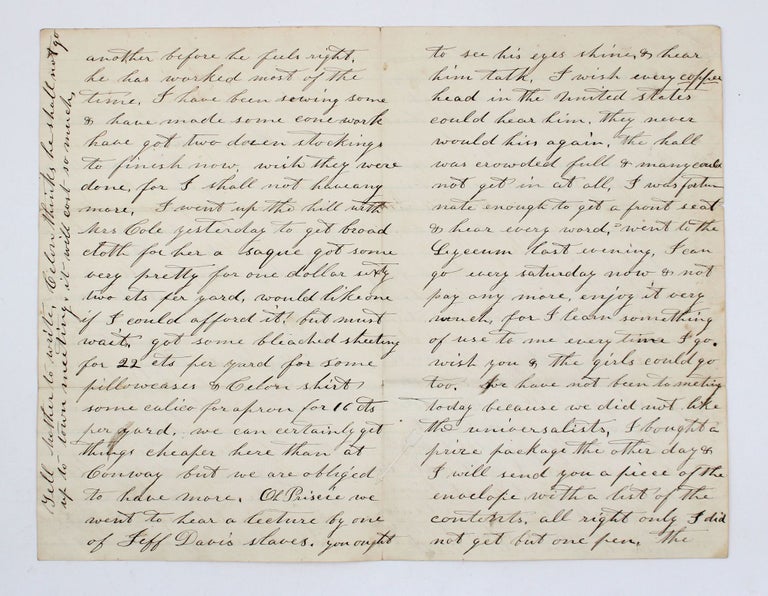 another before he feels right.
he has worked most of the
time. I have been sewing some
& have made some cone work
have got two dozen stockings
to finish now, wish they were
done, for I shall not have any
more. I went up the hill with
Mrs Cole yesterday to get broad
cloth for her a saque got some
very pretty for one dollar sixty
two cts per yard, would like one
if I could afford it! but must
wait. got some bleached sheeting
for 22 cts per yard for some
pillowcases & Celon shirt
some calico for apron for 16 cts
per yard. we can certainly get
things cheaper here than at
Conway but we are obliged
to have more. Oh Priscie we
went to hear a lecture by one
of Jeff Davis slaves. you ought
to see his eyes shine, & hear
him talk. I wish every copper
head in the United states
could hear him, they never
would hiss again, the hall
was crowded full & many could
not get in at all, I was fortu
nate enough to get a front seat
& hear every word, went to the
Lyceum last evening, I can
go every saturday now & not
pay any more, enjoy it very
much, for I learn something
of use to me every time I go.
wish you & the girls could go
too. we have not been to meting
today because we did not like
the universalists, I bought a
prize package the other day &
I will send you a piece of the
envelope with a list of the
contents. all right only I did
not get but one pen. The
Tell Mother to write, Celon thinks he shall not go
up to town meeting, it will cost so much,